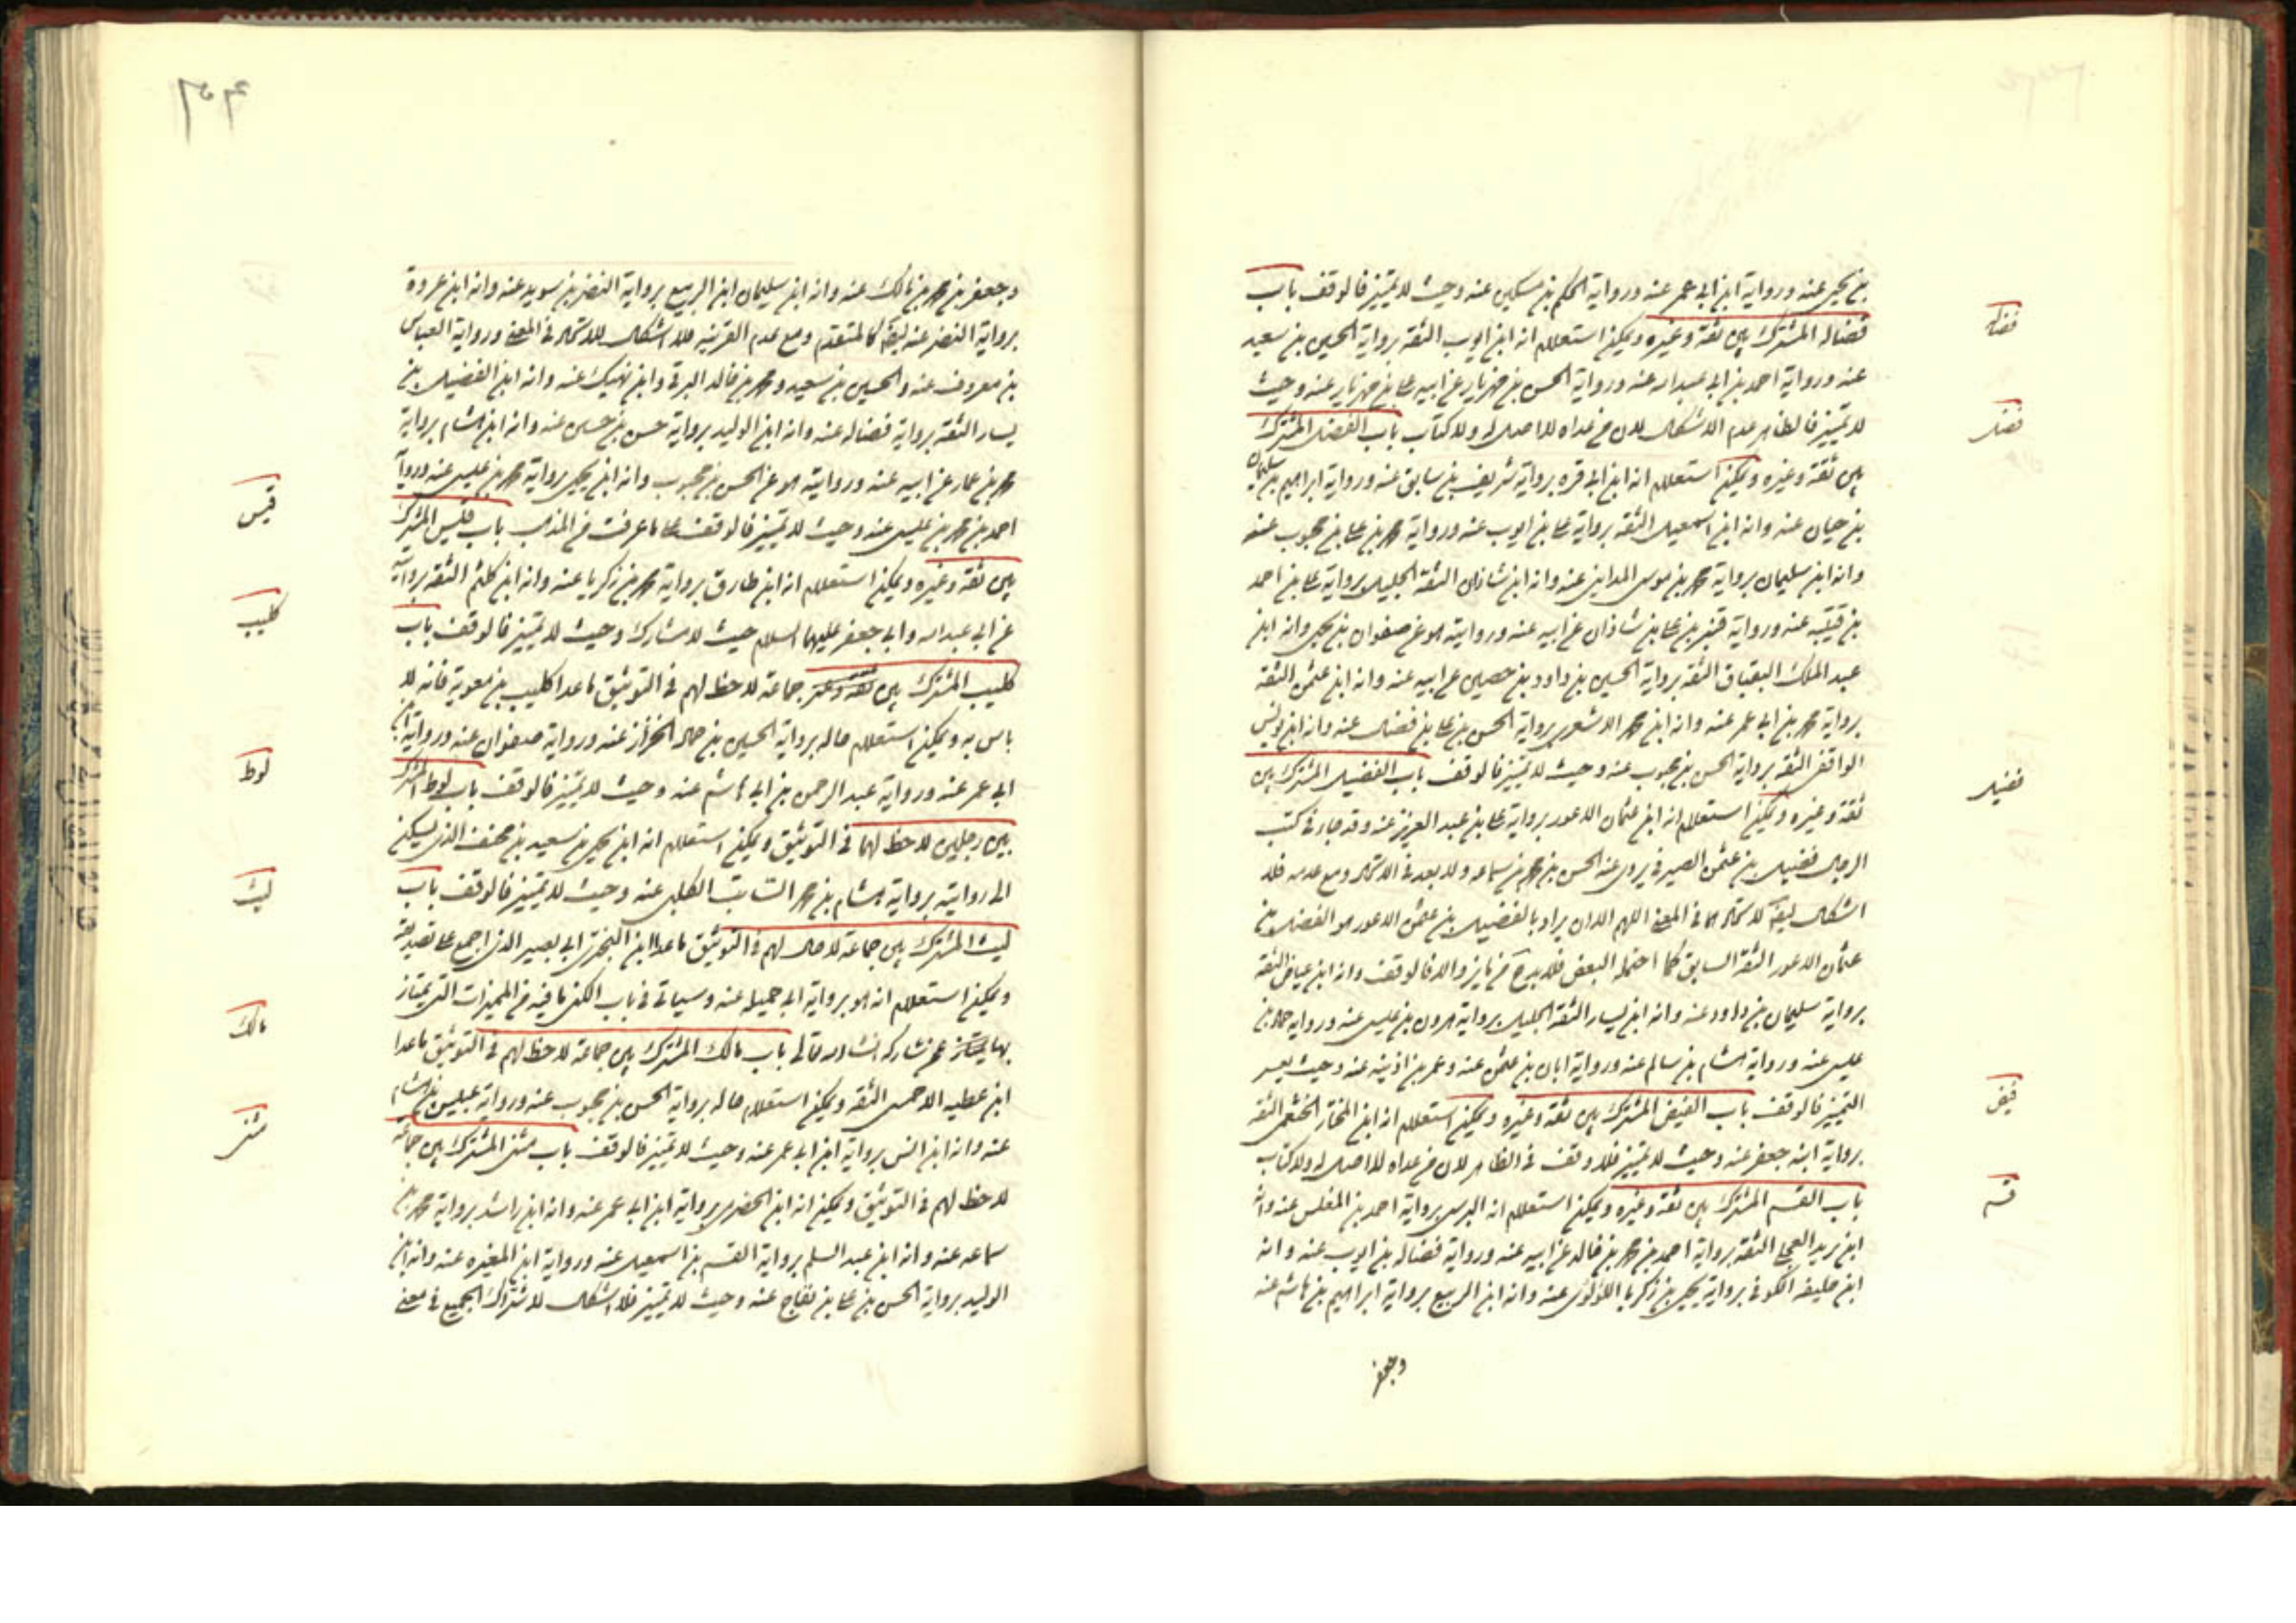 بن يحيى عنه ورواية ابن ابي عمير عنه ورواية الحكم بن مسكين عنه وحيث لا تميز فالوقف باب
فضاله المشترك بين ثقة وغيره ويمكن استعلام انه ابن ايوب الثقة برواية الحسين بن سعيد
عنه ورواية احمد بن ابي عبد الله عنه ورواية الحسن بن مهزيار عن ابيه علي بن مهزيار عنه وحيث
لا تميز فالظاهر عدم الاشكال لان من عداه لا اصل له ولا كتاب باب الفضل المشترك
بين ثقة وغيره ويمكن استعلام انه ابن ابي قره برواية شريف بن سابق عنه ورواية ابراهيم بن سليمان
بن حيان عنه وانه ابن اسمعيل الثقة برواية علي بن ايوب عنه ورواية محمد بن علي بن محبوب عنه
وانه ابن سليمان برواية محمد بن موسى المدايني عنه وانه ابن شاذان الثقة الجليل برواية علي بن احمد
بن قتيبه عنه ورواية قنبر بن علي بن شاذان عن ابيه عنه وروايته هو عن صفوان بن يحيى وانه ابن
عبد الملك البقباق الثقة برواية الحسين بن داود بن حصين عن ابيه عنه وانه ابن عثمن الثقة
برواية محمد بن ابي عمير عنه وانه ابن محمد الاشعري برواية الحسن بن علي بن فضال عنه وانه ابن يونس
الواقفي الثقة برواية الحسن بن محبوب عنه وحيث لا تميز فالوقف باب الفضيل المشترك بين
ثقة وغيره ويمكن استعلام انه ابن عثمان الاعور برواية علي بن عبد العزيز عنه وقد جاء في كتب
الرجال فضيل بن عثمن الصيرفي يروي عنه الحسن بن محمد بن سماعه ولا بعد في الاتحاد ومع عدمه فلا
اشكال ايضا لاتحادهما في المعنى اللهم الا ان يراد بالفضيل بن عثمن الاعور هو الفضل بن
عثمان الاعور الثقة السابق كما احتمله البعض فلا بد ح من مايز والا فالوقف وانه ابن عياض الثقة
برواية سليمان بن داود عنه وانه ابن يسار الثقة الجليل برواية هرون بن عيسى عنه ورواية حماد بن
عيسى عنه ورواية هشام بن سالم عنه ورواية ابان بن عثمن عنه وعمر بن اذينه عنه وحيث يعسر
التميز فالوقف باب الفيض المشترك بين ثقة وغيره ويمكن استعلام انه ابن المختار الخثعمي الثقة
برواية ابنه جعفر عنه وحيث لا تميز فلا وقف في الظاهر لان من عداه لا اصل له ولا كتاب
باب القسم المشترك بين ثقة وغيره ويمكن استعلام انه البرسي برواية احمد بن المفلس عنه وانه
ابن بريد العجلي الثقة برواية احمد بن محمد بن خالد عن ابيه عنه ورواية فضاله بن ايوب عنه وانه
ابن خليفه الكوفي برواية يحيى بن زكريا اللؤلؤي عنه وانه ابن الربيع برواية ابراهيم بن هاشم عنه
وجعفر
فضاله
فضل
فضيل
فيض
قسم
وجعفر بن محمد بن مالك عنه وانه ابن سليمان ابن الربيع برواية النضر بن سويد عنه وانه ابن عروة
برواية النضر عنه ايضا كالمتقدم ومع عدم القرينه فلا اشكال للاتحاد في المعنى ورواية العباس
بن معروف عنه والحسين بن سعيد ومحمد بن خالد البرقي وابن نهيك عنه وانه ابن الفضيل بن
يسار الثقة برواية فضاله عنه وانه ابن الوليد برواية حسن بن حسين عنه وانه ابن هشام برواية
محمد بن عمار عن ابيه عنه وروايته هو عن الحسن بن محبوب وانه ابن يحيى برواية محمد بن عيسى عنه ورواية
احمد بن محمد بن عيسى عنه وحيث لا تميز فالوقف على ما عرفت من المذهب باب قيس المشترك
بين ثقة وغيره ويمكن استعلام انه ابن طارق برواية محمد بن زكريا عنه وانه ابن كلثم الثقة بروايته
عن ابي عبد الله وابي جعفر عليهما السلام حيث لا مشارك وحيث لا تميز فالوقف باب
كليب المشترك بين ثقة وغير جماعة لاحظ لهم في التوثيق ماعدا كليب بن معوية فانه لا
باس به ويمكن استعلام حاله برواية الحسين بن حماد الخزاز عنه ورواية صفوان عنه ورواية ابن
ابي عمير عنه ورواية عبد الرحمن بن ابي هاشم عنه وحيث لا تميز فالوقف باب لوط المشترك
بين رجلين لاحظ لهما في التوثيق ويمكن استعلام انه ابن يحيى بن سعيد بن مخنف الذي يسكن
الى روايته برواية هشام بن محمد السائب الكلبي عنه وحيث لا تميز فالوقف باب
ليث المشترك بين جماعة لا حال لهم في التوثيق ماعدا ابن البختري ابي بصير الذي اجمع على تصديقه
ويمكن استعلام انه هو برواية ابي جميله عنه وسياتي في باب الكنى ما فيه من المميزات التي يمتاز
بها يمتاز عمن شاركه انشا الله تعالى باب مالك المشترك بين جماعة لاحظ لهم في التوثيق ماعدا
ابن عطيه الاحمسي الثقة ويمكن استعلام حاله برواية الحسن بن محبوب عنه ورواية عبيس بن هشام
عنه وانه ابن انس برواية ابن ابي عمير عنه وحيث لا تميز فالوقف باب مثنى المشترك بين جماعة
لاحظ لهم في التوثيق ويمكن انه ابن الحضرمي برواية ابن ابي عمير عنه وانه ابن راشد برواية محمد بن
سماعه عنه وانه ابن عبد السلم برواية القسم بن اسمعيل عنه ورواية ابن المغيره عنه وانه ابن
الوليد برواية الحسن بن علي بن بقاح عنه وحيث لا تميز فلا اشكال لاشتراك الجميع في معنى
قيس
كليب
لوط
ليث
مالك
مثنى